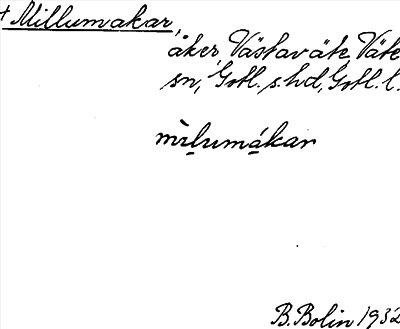 + Millumakar,
åker, Västaväte, Väte
sn, Gotl. s. hd, Gotl. l.
mìlumákar
B. Bolin 1932